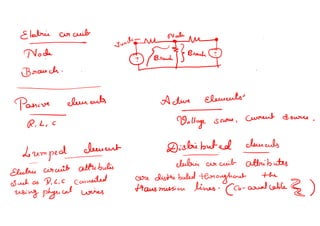 Eletric circuit
Node
Branch.
Node
Branch
Branch
Passive elements
R, L, C
Active Elements.
Voltage source, Current source.
Lumped element
Electric circuit attributes
such as R, L, C connected
using physical wires
Distributed elements
electric circuit attributes
are distributed throughout the
transmission lines. (Co-axial cable